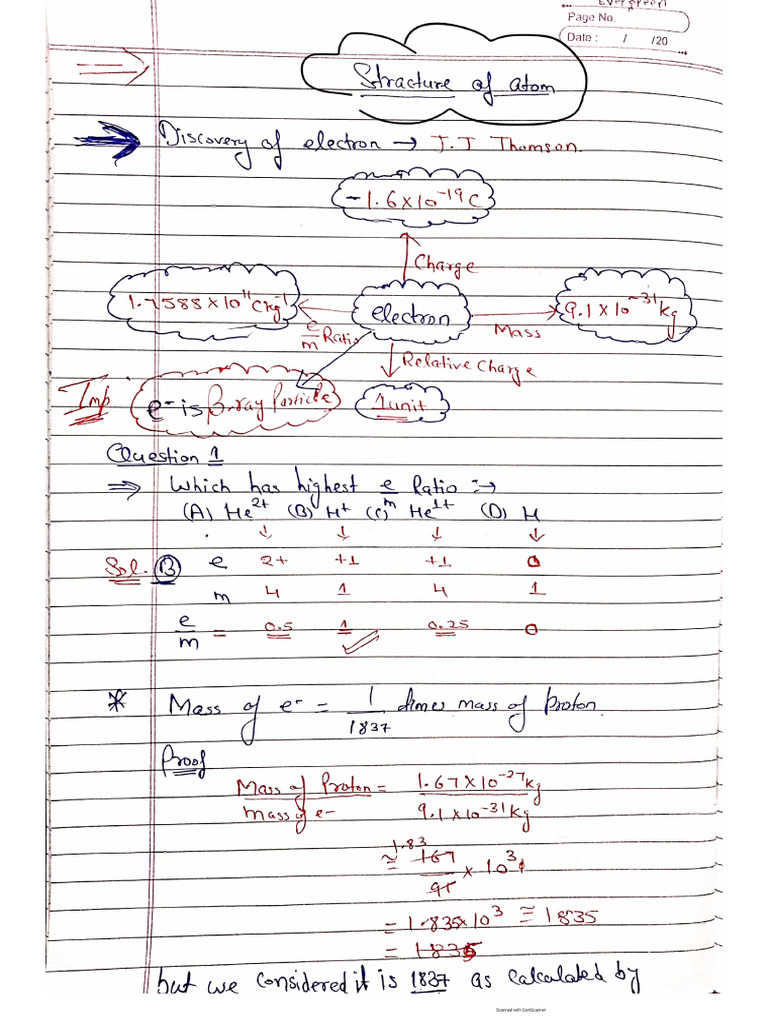 Evergreen
Page No.
Date : / /20
Stracture of atom
Discovery of electron → J.J Thomson.
-1.6×10⁻¹⁹C
Charge
1.7588×10¹¹Ckg⁻¹
electron
9.1×10⁻³¹kg
e/m Ratio
Mass
Relative Charge
Imp.
e⁻ is β-ray Particle
1 unit
Question 1
⇒ Which has highest e/m Ratio :→
(A) He²⁺ (B) H⁺ (C) He¹⁺ (D) H
↓ ↓ ↓ ↓
Sol. (B) e 2+ +1 +1 0
m 4 1 4 1
e/m = 0.5 1 ✓ 0.25 0
* Mass of e⁻ = 1/1837 times mass of Proton.
Proof
Mass of Proton / mass of e⁻ = 1.67×10⁻²⁷kg / 9.1×10⁻³¹kg
1.83
≅ 167/91 × 10³
= 1.835×10³ ≅ 1835
= 1835
but we considered it is 1837 as calculated by
Scanned with CamScanner